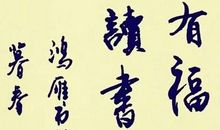 有福
讀書
鴻雁
暮春